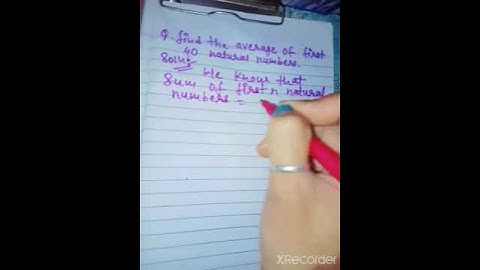 Q. find the average of first
40 natural numbers.
Soln:
We know that
Sum of first n natural
numbers =
XRecorder